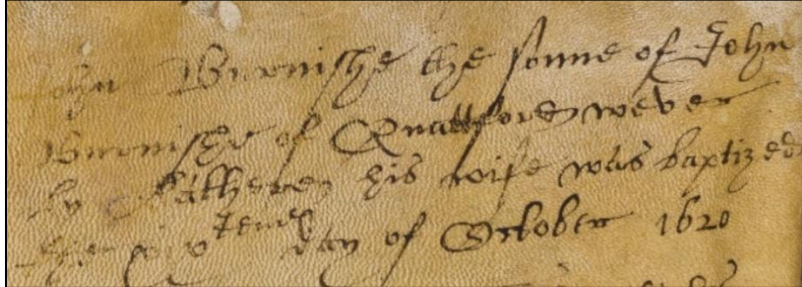 John Burnishe the sonne of John
Burnishe of Quattford wever
by Katheren his wife was baptized
the day of October 1620